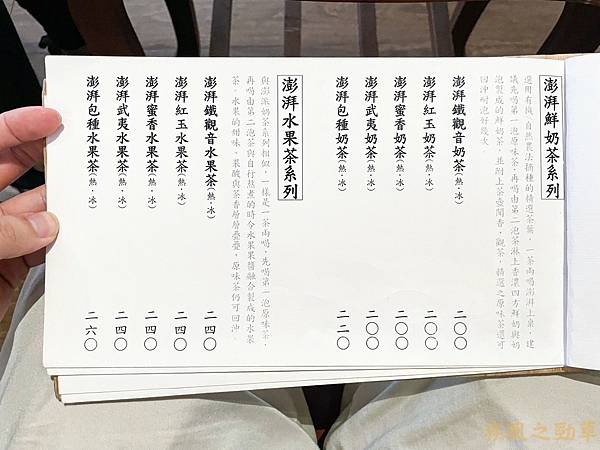 澎湃鮮奶茶系列
選用有機、自然農法摘種的精選茶葉，一茶兩喝澎湃上桌，建
議先喝第一泡原味茶，再喝由第二泡茶淋上香濃四方鮮奶與奶
泡製成的鮮奶茶，並附上茶壺聞香、觀茶，精選之原味茶還可
回沖耐泡好幾次。
澎湃鐵觀音奶茶(熱·冰) 二〇〇
澎湃紅玉奶茶(熱·冰) 二〇〇
澎湃蜜香奶茶(熱·冰) 二〇〇
澎湃武夷奶茶(熱·冰) 二〇〇
澎湃包種奶茶(熱·冰) 二二〇
澎湃水果茶系列
與澎派奶茶系列相似，一樣是一茶兩喝，先喝第一泡原味茶，
再喝由第二泡茶與自行熬煮的時令水果果醬融合製成的水果
茶，水果的甜味、果酸與茶香層層疊疊，原味茶仍可回沖。
澎湃鐵觀音水果茶(熱·冰) 二四〇
澎湃紅玉水果茶(熱·冰) 二四〇
澎湃蜜香水果茶(熱·冰) 二四〇
澎湃武夷水果茶(熱·冰) 二四〇
澎湃包種水果茶(熱·冰) 二六〇
疾風之勁草